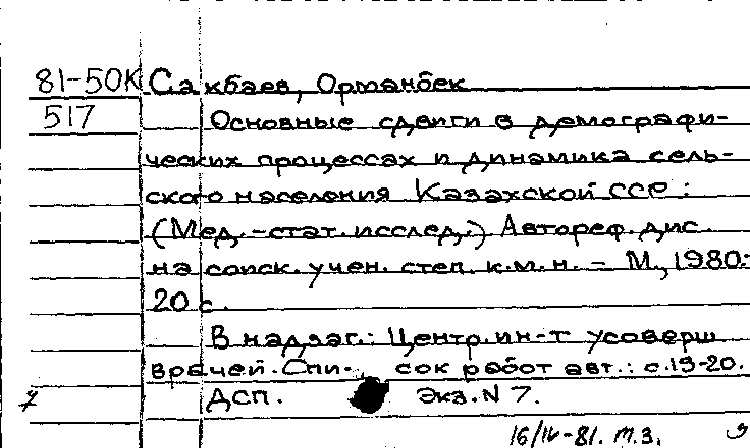 81-50К Сакбаев, Орманбек
517 Основные сдвиги в демографи-
ческих процессах и динамика сель-
ского населения Казахской ССР:
(Мед.-стат. исслед.) Автореф. дис.
на соиск. учен. степ. к.м.н. - М., 1980.-
20 с.
В надзаг.: Центр. ин-т усоверш
врачей. Спи- сок работ авт.: с.19-20.
ДСП. Экз. N 7.
16/IV-81. т.з.